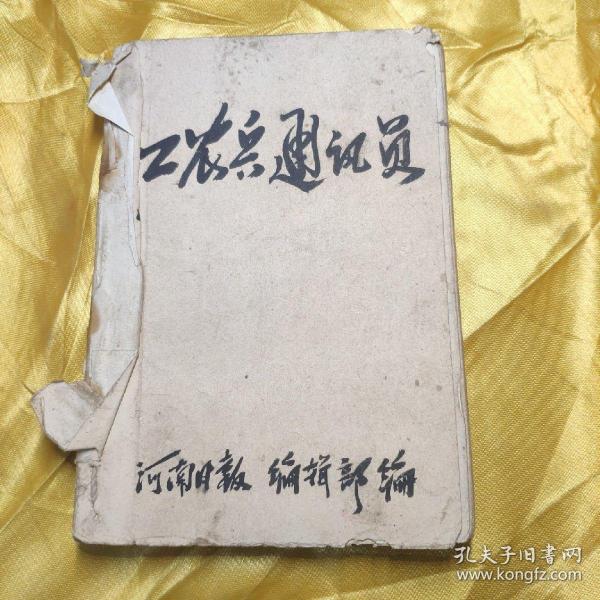 工农兵通讯员
河南日报 编辑部编
孔夫子旧書网
www.kongfz.com